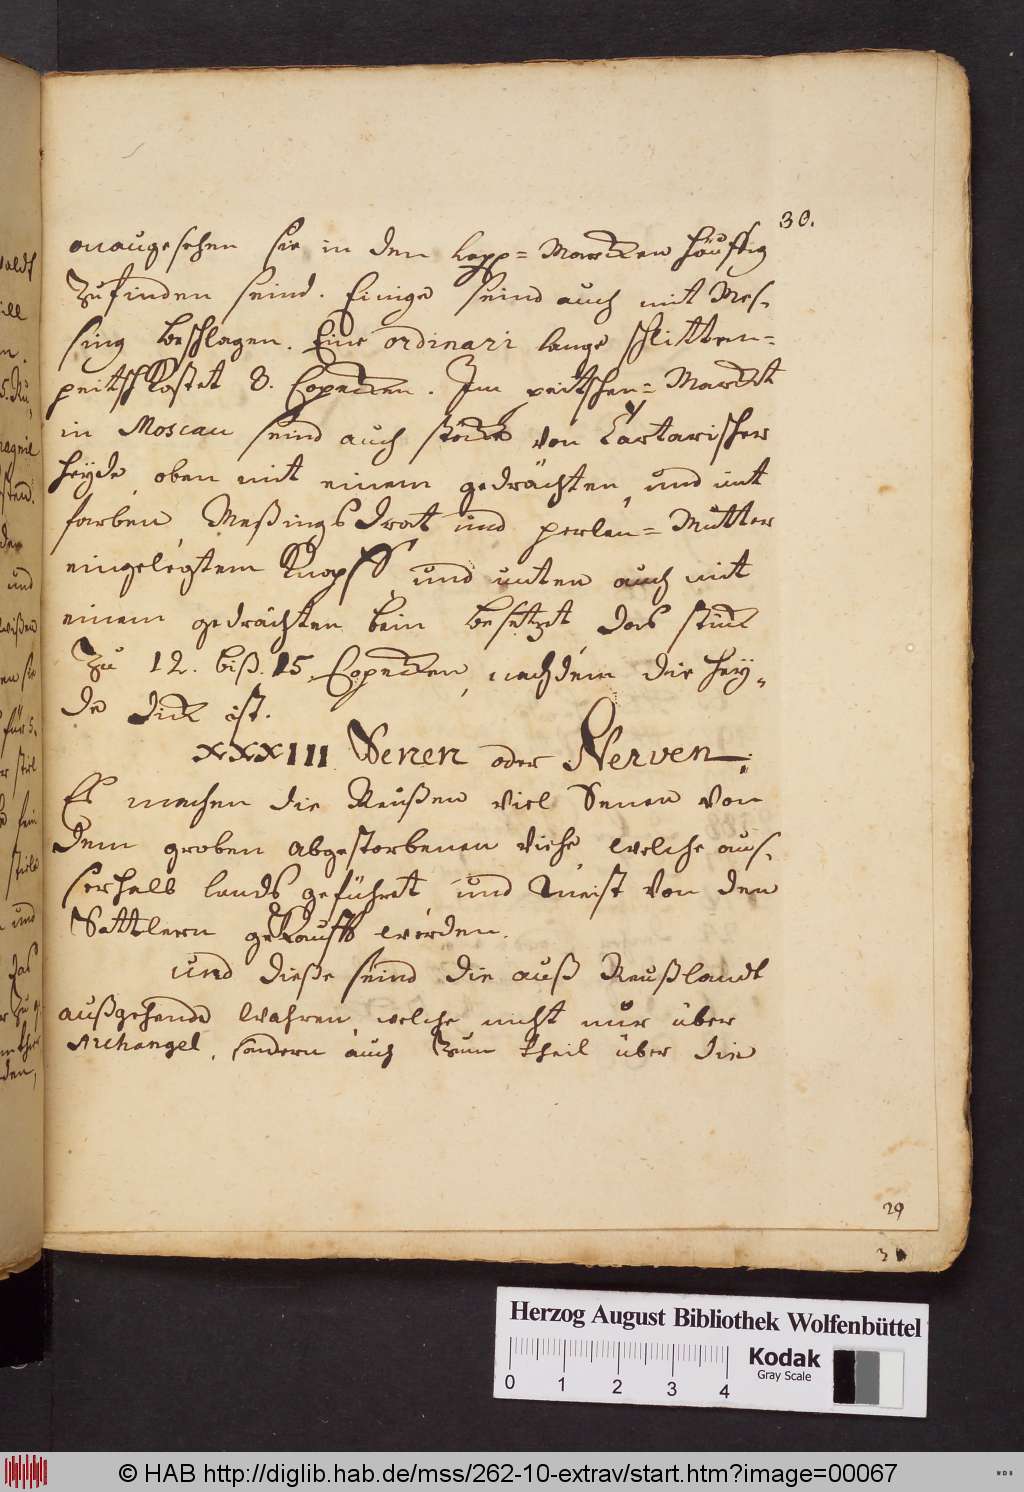 30.
onangesehen sie in den Kapp= Marckten häuffig
Zufinden seind. Einige seind auch mit Mes-
sing beschlagen. Eine ordinari lange schlitten=
peitsch Kostet 8. Copecken. Im peitschen= Marckt
in Moscau seind auch stöcke von Tartarischer
heyde, oben mit einem gedrächten, und mit
farben, Meßings Drat und perlen= Mutter
eingelegtem Knopff, und unten auch mit
einem gedrächten bein besetzt, das stück
Zu 12. biß 15. Copecken, nachdem die hey-
de dick ist.
XXXIII Senen oder Nerven.
Es machen die Reußen viel Senen von
dem groben abgestorbenen viehe, welche aus-
serhalb lands geführt und meist von den
Sattlern gekaufft werden.
und dieße seind die auß Reußlandt
außgehende Wahren, welche nicht nur über
Archangel, sondern auch Zum theil über die
29
3
Herzog August Bibliothek Wolfenbüttel
0 1 2 3 4
Kodak
Gray Scale
© HAB http://diglib.hab.de/mss/262-10-extrav/start.htm?image=00067